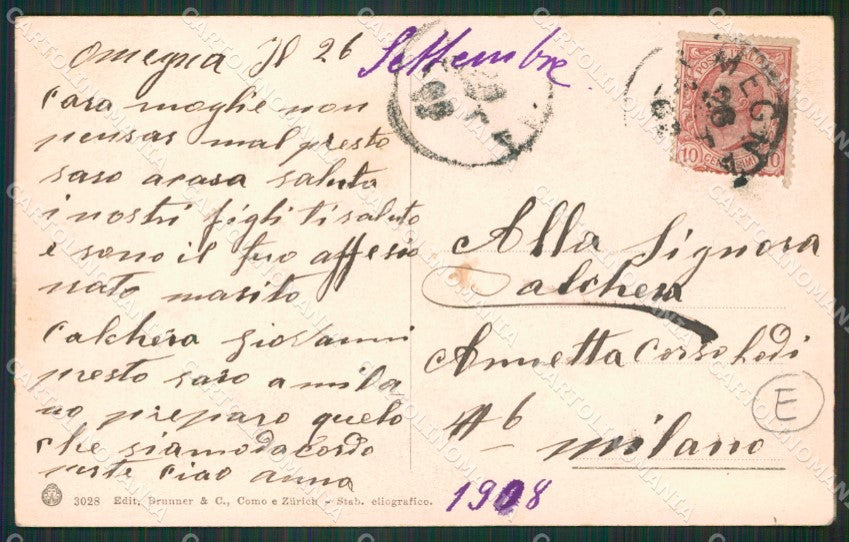 Omegna Il 26 Settembre
Cara moglie non
pensar mal presto
saso acasa saluta
i nostri figli ti saluto
e sono il tuo affesio
nato marito
Calchera Giovanni
presto saro a mila
no preparo quelo
che siamo dacordo
ciao anna
Alla Signora
Calchera
Annetta Corso Lodi
6
Milano
1908
E
OMEGNA
26
10 CENTESIMI 10
3028 Edit. Brunner & C., Como e Zürich - Stab. eliografico.
CARTOLINOMANIA